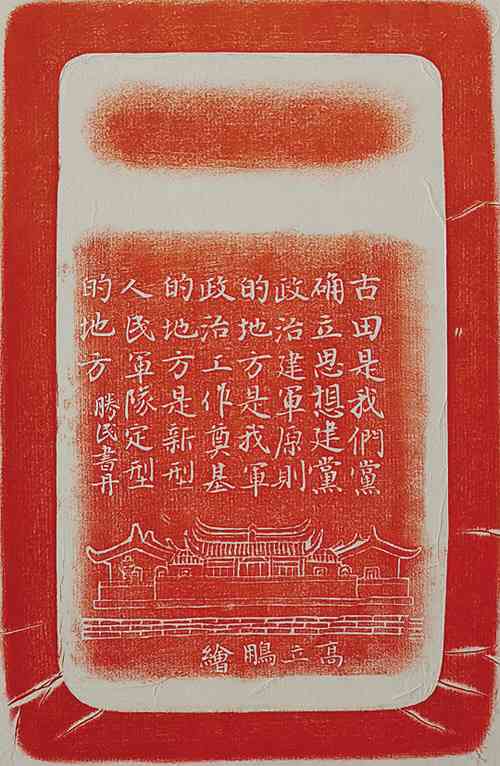 古田是我們黨
确立思想建黨
政治建軍原則
的地方是我軍
政治工作奠基
的地方是新型
人民軍隊定型
的地方 勝民書丹
高立鵬繪